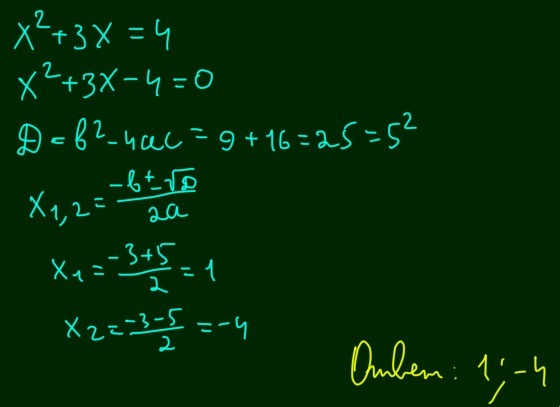 x² + 3x = 4
x² + 3x - 4 = 0
D = b² - 4ac = 9 + 16 = 25 = 5²
x₁,₂ = (-b ± √D) / 2a
x₁ = (-3 + 5) / 2 = 1
x₂ = (-3 - 5) / 2 = -4
Ответ: 1; -4